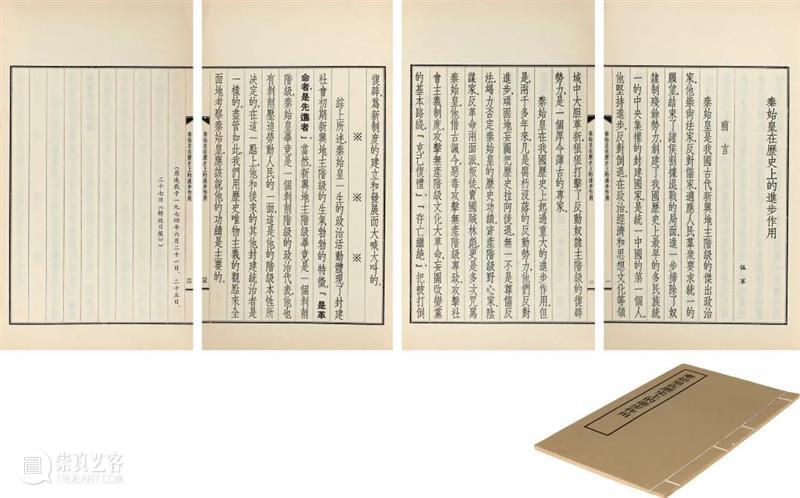 秦始皇在歷史上的進步作用
伍軍
前言
秦始皇是我國古代新興地主階級的傑出政治
家。他崇尚法家，反對儒家，適應人民羣衆要求統一的
願望，結束了諸侯割據混戰的局面，進一步掃除了奴
隸制殘餘勢力，創建了我國歷史上最早的多民族統
一的中央集權的封建國家，是統一中國的第一個人。
他堅持進步，反對倒退，在政治、經濟和思想文化等領
秦始皇在歷史上的進步作用
域中大胆革新，狠狠打擊了反動奴隸主階級的復辟
勢力，是一個厚今薄古的專家。
秦始皇在我國歷史上起過重大的進步作用。但
是，兩千多年來，凡是腐朽没落的反動勢力，他們反對
進步，頑固地妄圖把歷史拉向後退，無一不是尊儒反
法，竭力否定秦始皇的歷史功績。資產階級野心家、陰
謀家、反革命兩面派、叛徒、賣國賊林彪，更是多次咒駡
秦始皇。他借古諷今，惡毒攻擊無產階級專政，攻擊社
會主義制度，攻擊無產階級文化大革命，妄圖改變黨
的基本路綫，「克己復禮」、「存亡繼絶」，把被打倒
秦始皇在歷史上的進步作用
復辟，爲新制度的建立和發展而大喊大叫的。
※ ※ ※
綜上所述，秦始皇一生的政治活動，體現了封建
社會初期新興地主階級的生氣勃勃的特徵，「是革
命者，是先進者」。當然，新興地主階級畢竟是一個剥削
階級，秦始皇畢竟是一個剥削階級的政治代表，他也
有剥削壓迫勞動人民的一面，這是他的階級本性所
決定的，在這一點上，他和後來的其他封建統治者是
一樣的。儘管如此，我們用歷史唯物主義的觀點來全
面地考察秦始皇，應該説他的功績是主要的。
秦始皇在歷史上的進步作用
（原連載于一九七四年六月二十一日、二十五日、
二十七日《解放日報》）
秦始皇在歷史上的進步作用
崇真艺客